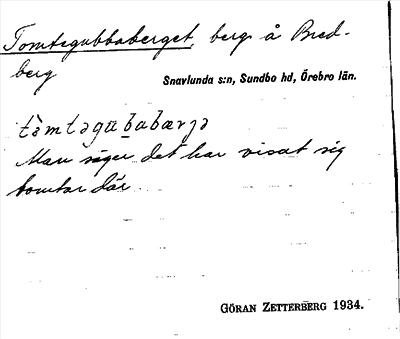 Tomtegubbaberget, berg å Bred-
berg
Snavlunda s:n, Sundbo hd, Örebro län.
tòmtəgubabærjə
Man säger det har visat sig
tomtar där
GÖRAN ZETTERBERG 1934.